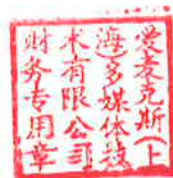 爱麦克斯(上
海)多媒体技
术有限公司
财务专用章